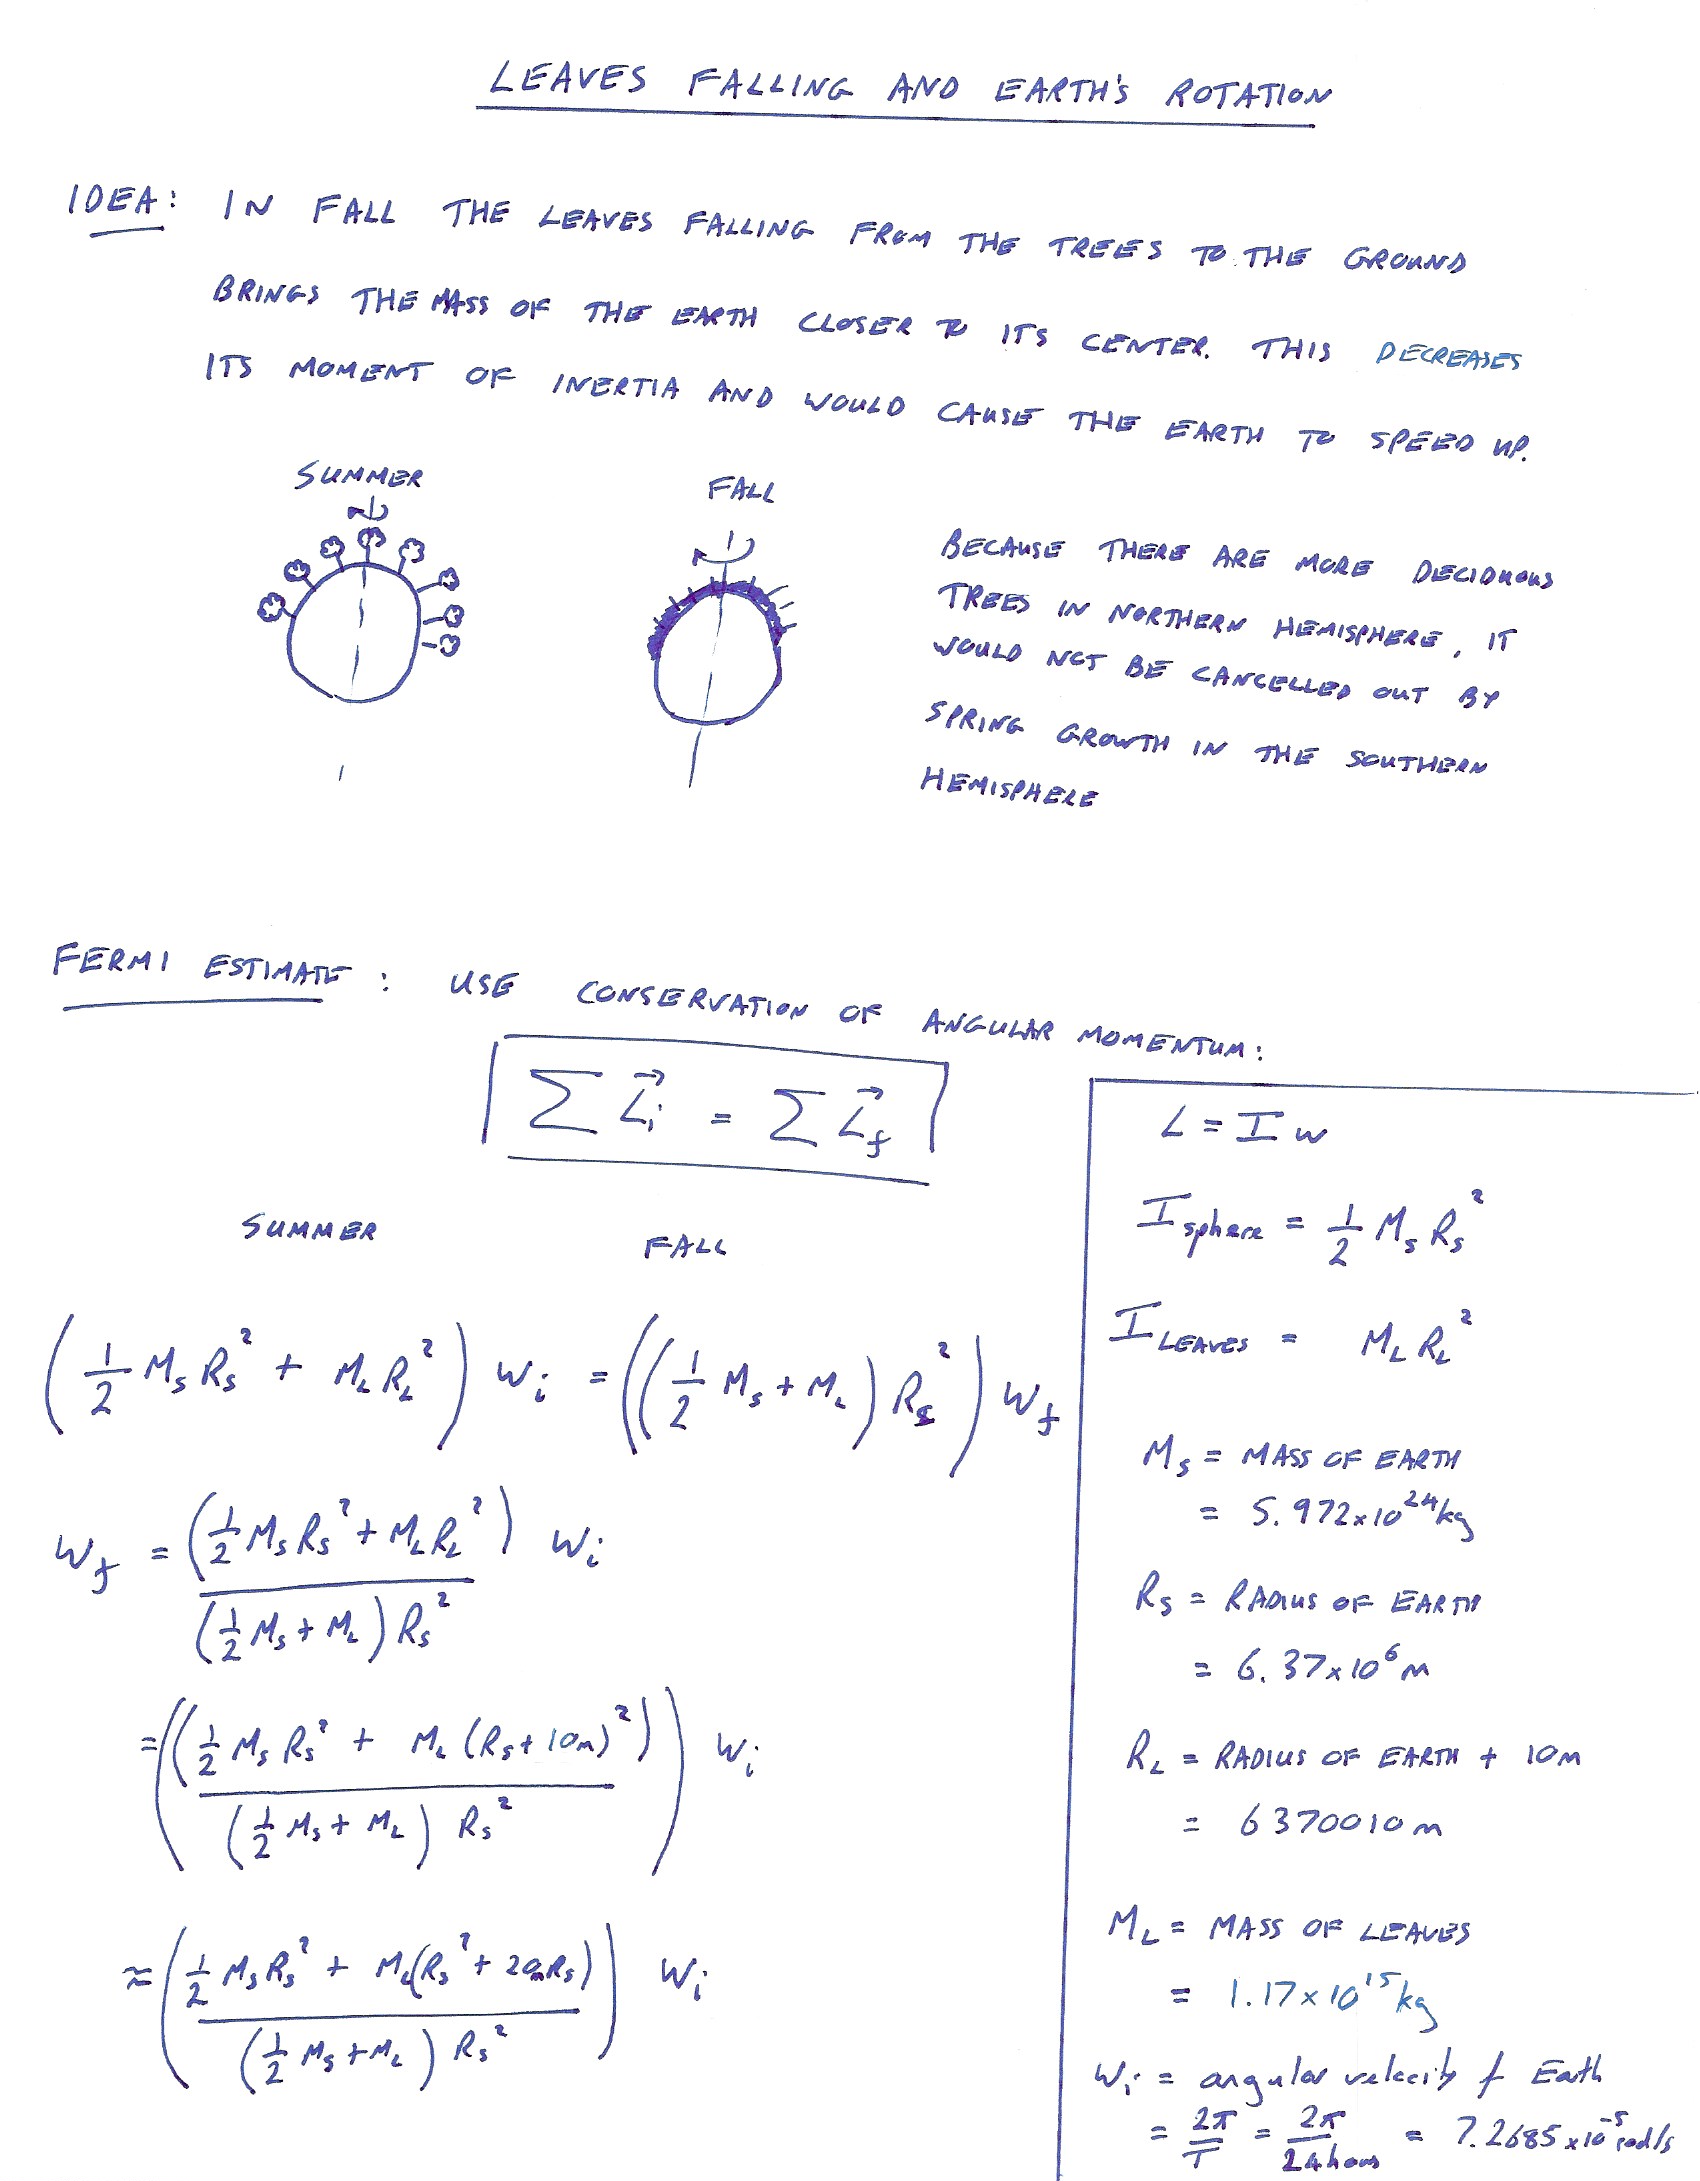 LEAVES FALLING AND EARTH'S ROTATION
IDEA: IN FALL THE LEAVES FALLING FROM THE TREES TO THE GROUND
BRINGS THE MASS OF THE EARTH CLOSER TO ITS CENTER. THIS DECREASES
ITS MOMENT OF INERTIA AND WOULD CAUSE THE EARTH TO SPEED UP.
SUMMER
FALL
BECAUSE THERE ARE MORE DECIDUOUS
TREES IN NORTHERN HEMISPHERE, IT
WOULD NOT BE CANCELLED OUT BY
SPRING GROWTH IN THE SOUTHERN
HEMISPHERE
FERMI ESTIMATE: USE CONSERVATION OF ANGULAR MOMENTUM:
∑ L⃗i = ∑ L⃗f
SUMMER FALL
(1/2 Ms Rs² + ML RL²) Wi = ((1/2 Ms + ML) Rs²) Wf
Wf = (1/2 Ms Rs² + ML RL²) Wi
(1/2 Ms + ML) Rs²
= ((1/2 Ms Rs² + ML (Rs + 10m)²)) Wi
(1/2 Ms + ML) Rs²
≈ (1/2 Ms Rs² + ML(Rs² + 20m Rs)) Wi
(1/2 Ms + ML) Rs²
L = I w
I sphere = 1/2 Ms Rs²
I LEAVES = ML RL²
Ms = MASS OF EARTH
= 5.972x10²⁴kg
Rs = RADIUS OF EARTH
= 6.37x10⁶m
RL = RADIUS OF EARTH + 10m
= 6370010m
ML = MASS OF LEAVES
= 1.17x10¹⁵kg
Wi = angular velocity of Earth
= 2π/T = 2π/24hours = 7.2685x10⁻⁵rad/s